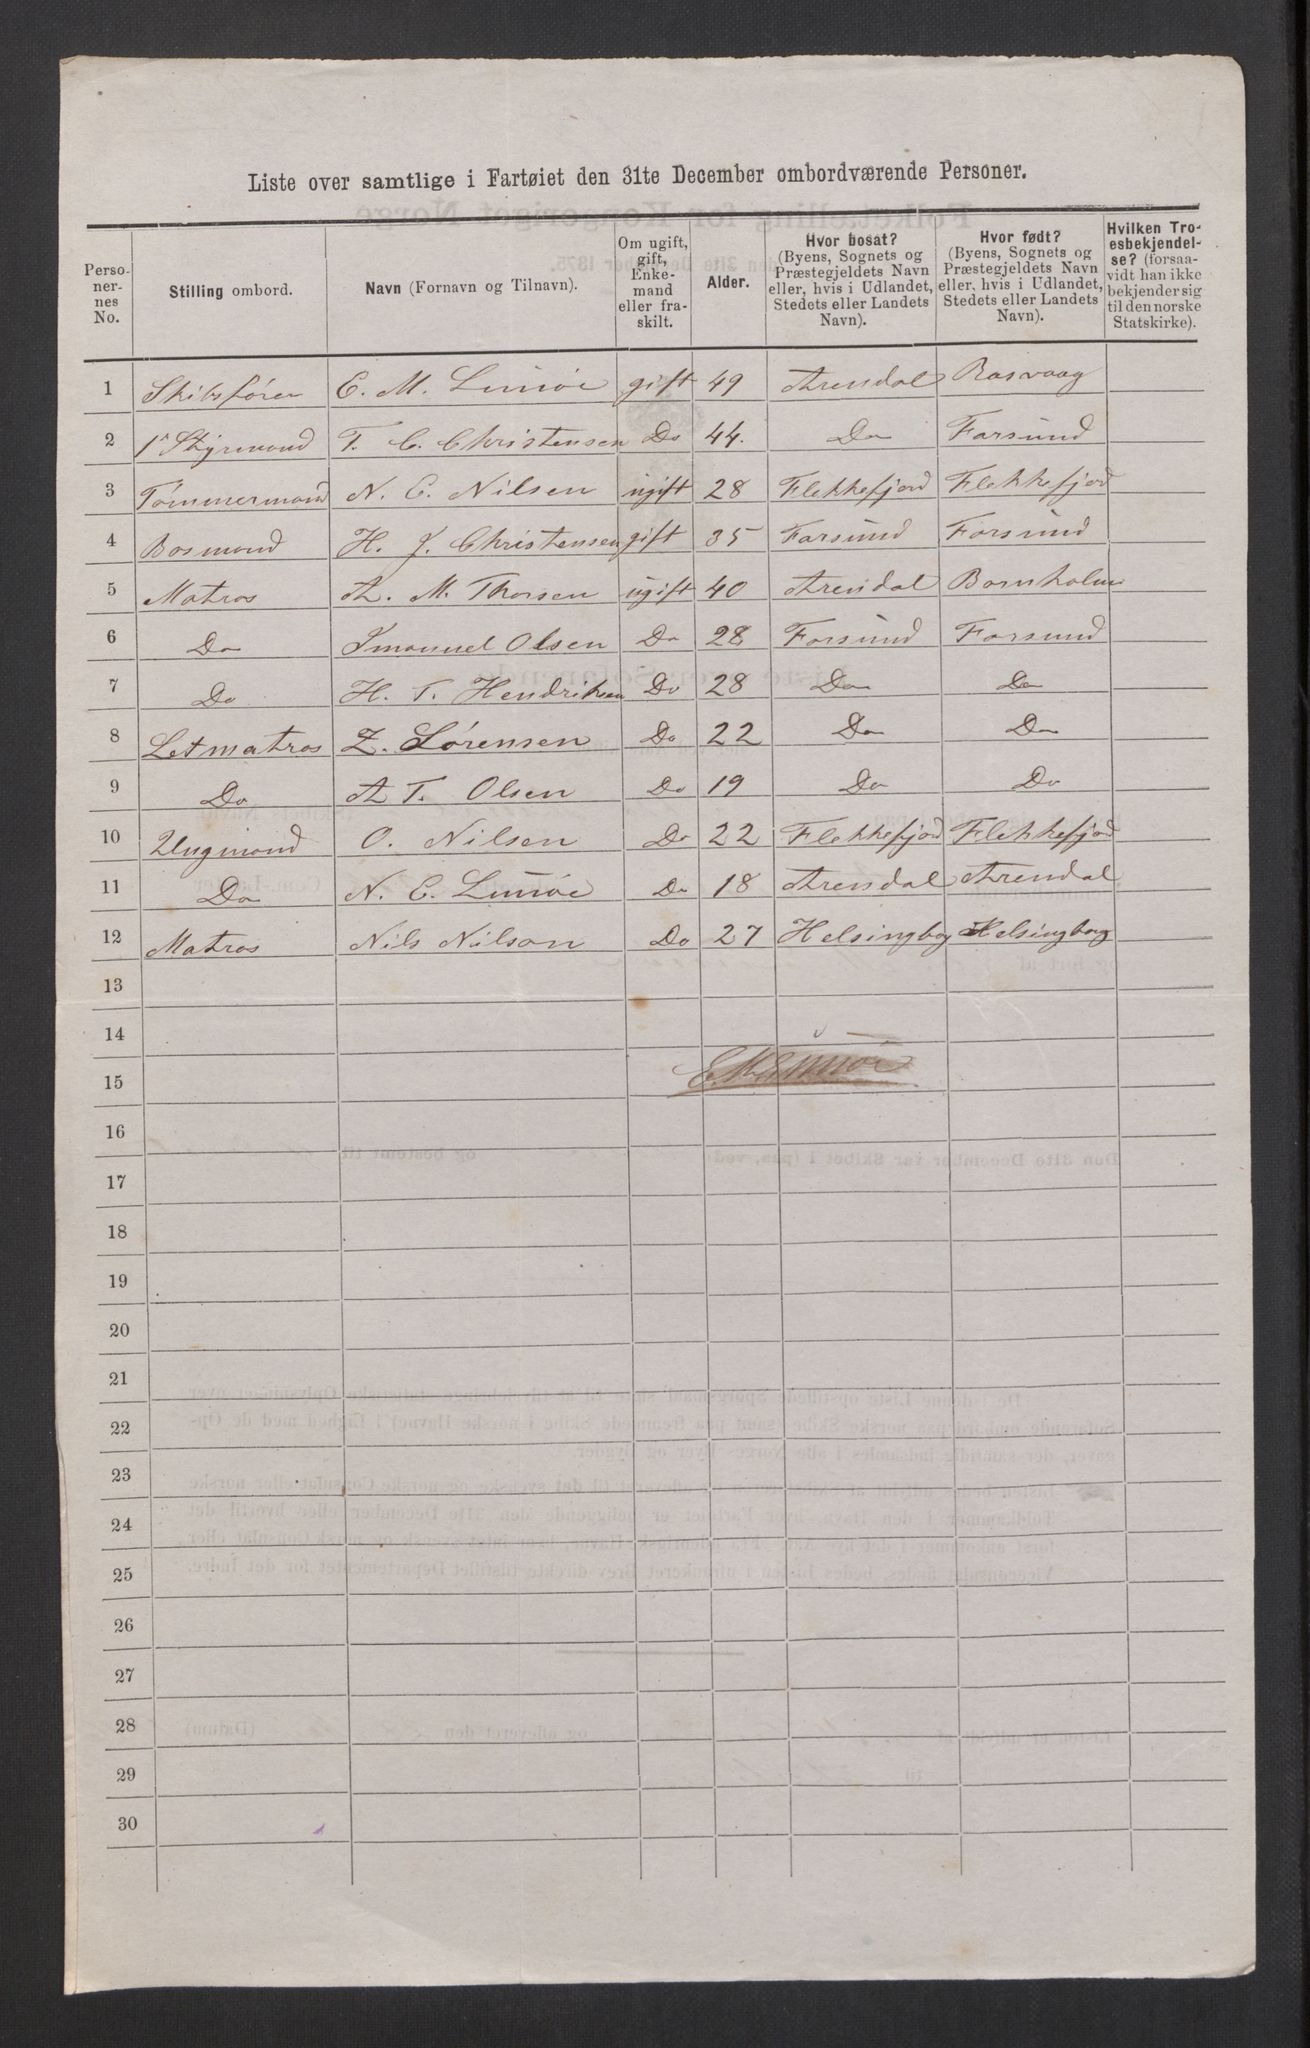 Liste over samtlige i Fartøiet den 31te December ombordværende Personer.
Perso-
ner-
nes
No.
Stilling ombord.
Navn (Fornavn og Tilnavn).
Om ugift,
gift,
Enke-
mand
eller fra-
skilt.
Alder.
Hvor bosat?
(Byens, Sognets og
Præstegjeldets Navn
eller, hvis i Udlandet,
Stedets eller Landets
Navn).
Hvor født?
(Byens, Sognets og
Præstegjeldets Navn
eller, hvis i Udlandet,
Stedets eller Landets
Navn).
Hvilken Tro-
esbekjendel-
se? (forsaa-
vidt han ikke
bekjender sig
til den norske
Statskirke).
1 Skibsfører E. M. gift 49 Arendal Rasvaag
2 1ste Styrmand T. C. Christensen Do 44. Do Farsund
3 Tømmermand N. C. Nilsen ugift 28 Flekkefjord Flekkefjord
4 Bosmand H. J. Christensen gift 35 Farsund Farsund
5 Matros A. M. Thorsen ugift 40 Arendal Bornholm
6 Do Imanuel Olsen Do 28 Farsund Farsund
7 Do H. T. Hendriksen Do 28 Do Do
8 Letmatros Z. Sørensen Do 22 Do Do
9 Do A T. Olsen Do 19 Do Do
10 Ungmand O. Nilsen Do 22 Flekkefjord Flekkefjord
11 Do N. C. Do 18 Arendal Arendal
12 Matros Nils Nilson Do 27 Helsingborg Helsingborg
13
14
15
16
17
18
19
20
21
22
23
24
25
26
27
28
29
30